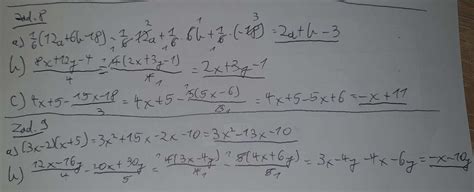 Zad. 8
a) 1/6(12a+6b-18) = 1/6·12a + 1/6·6b + 1/6·(-18) = 2a+b-3
b) (8x+12y-4)/4 = 4(2x+3y-1)/4 = 2x+3y-1
c) 4x+5-(15x-18)/3 = 4x+5-3(5x-6)/3 = 4x+5-5x+6 = -x+11
Zad. 9
a) (3x-2)(x+5) = 3x²+15x-2x-10 = 3x²-13x-10
b) (12x-16y)/4 - (20x+30y)/5 = 4(3x-4y)/4 - 5(4x+6y)/5 = 3x-4y-4x-6y = -x-10y